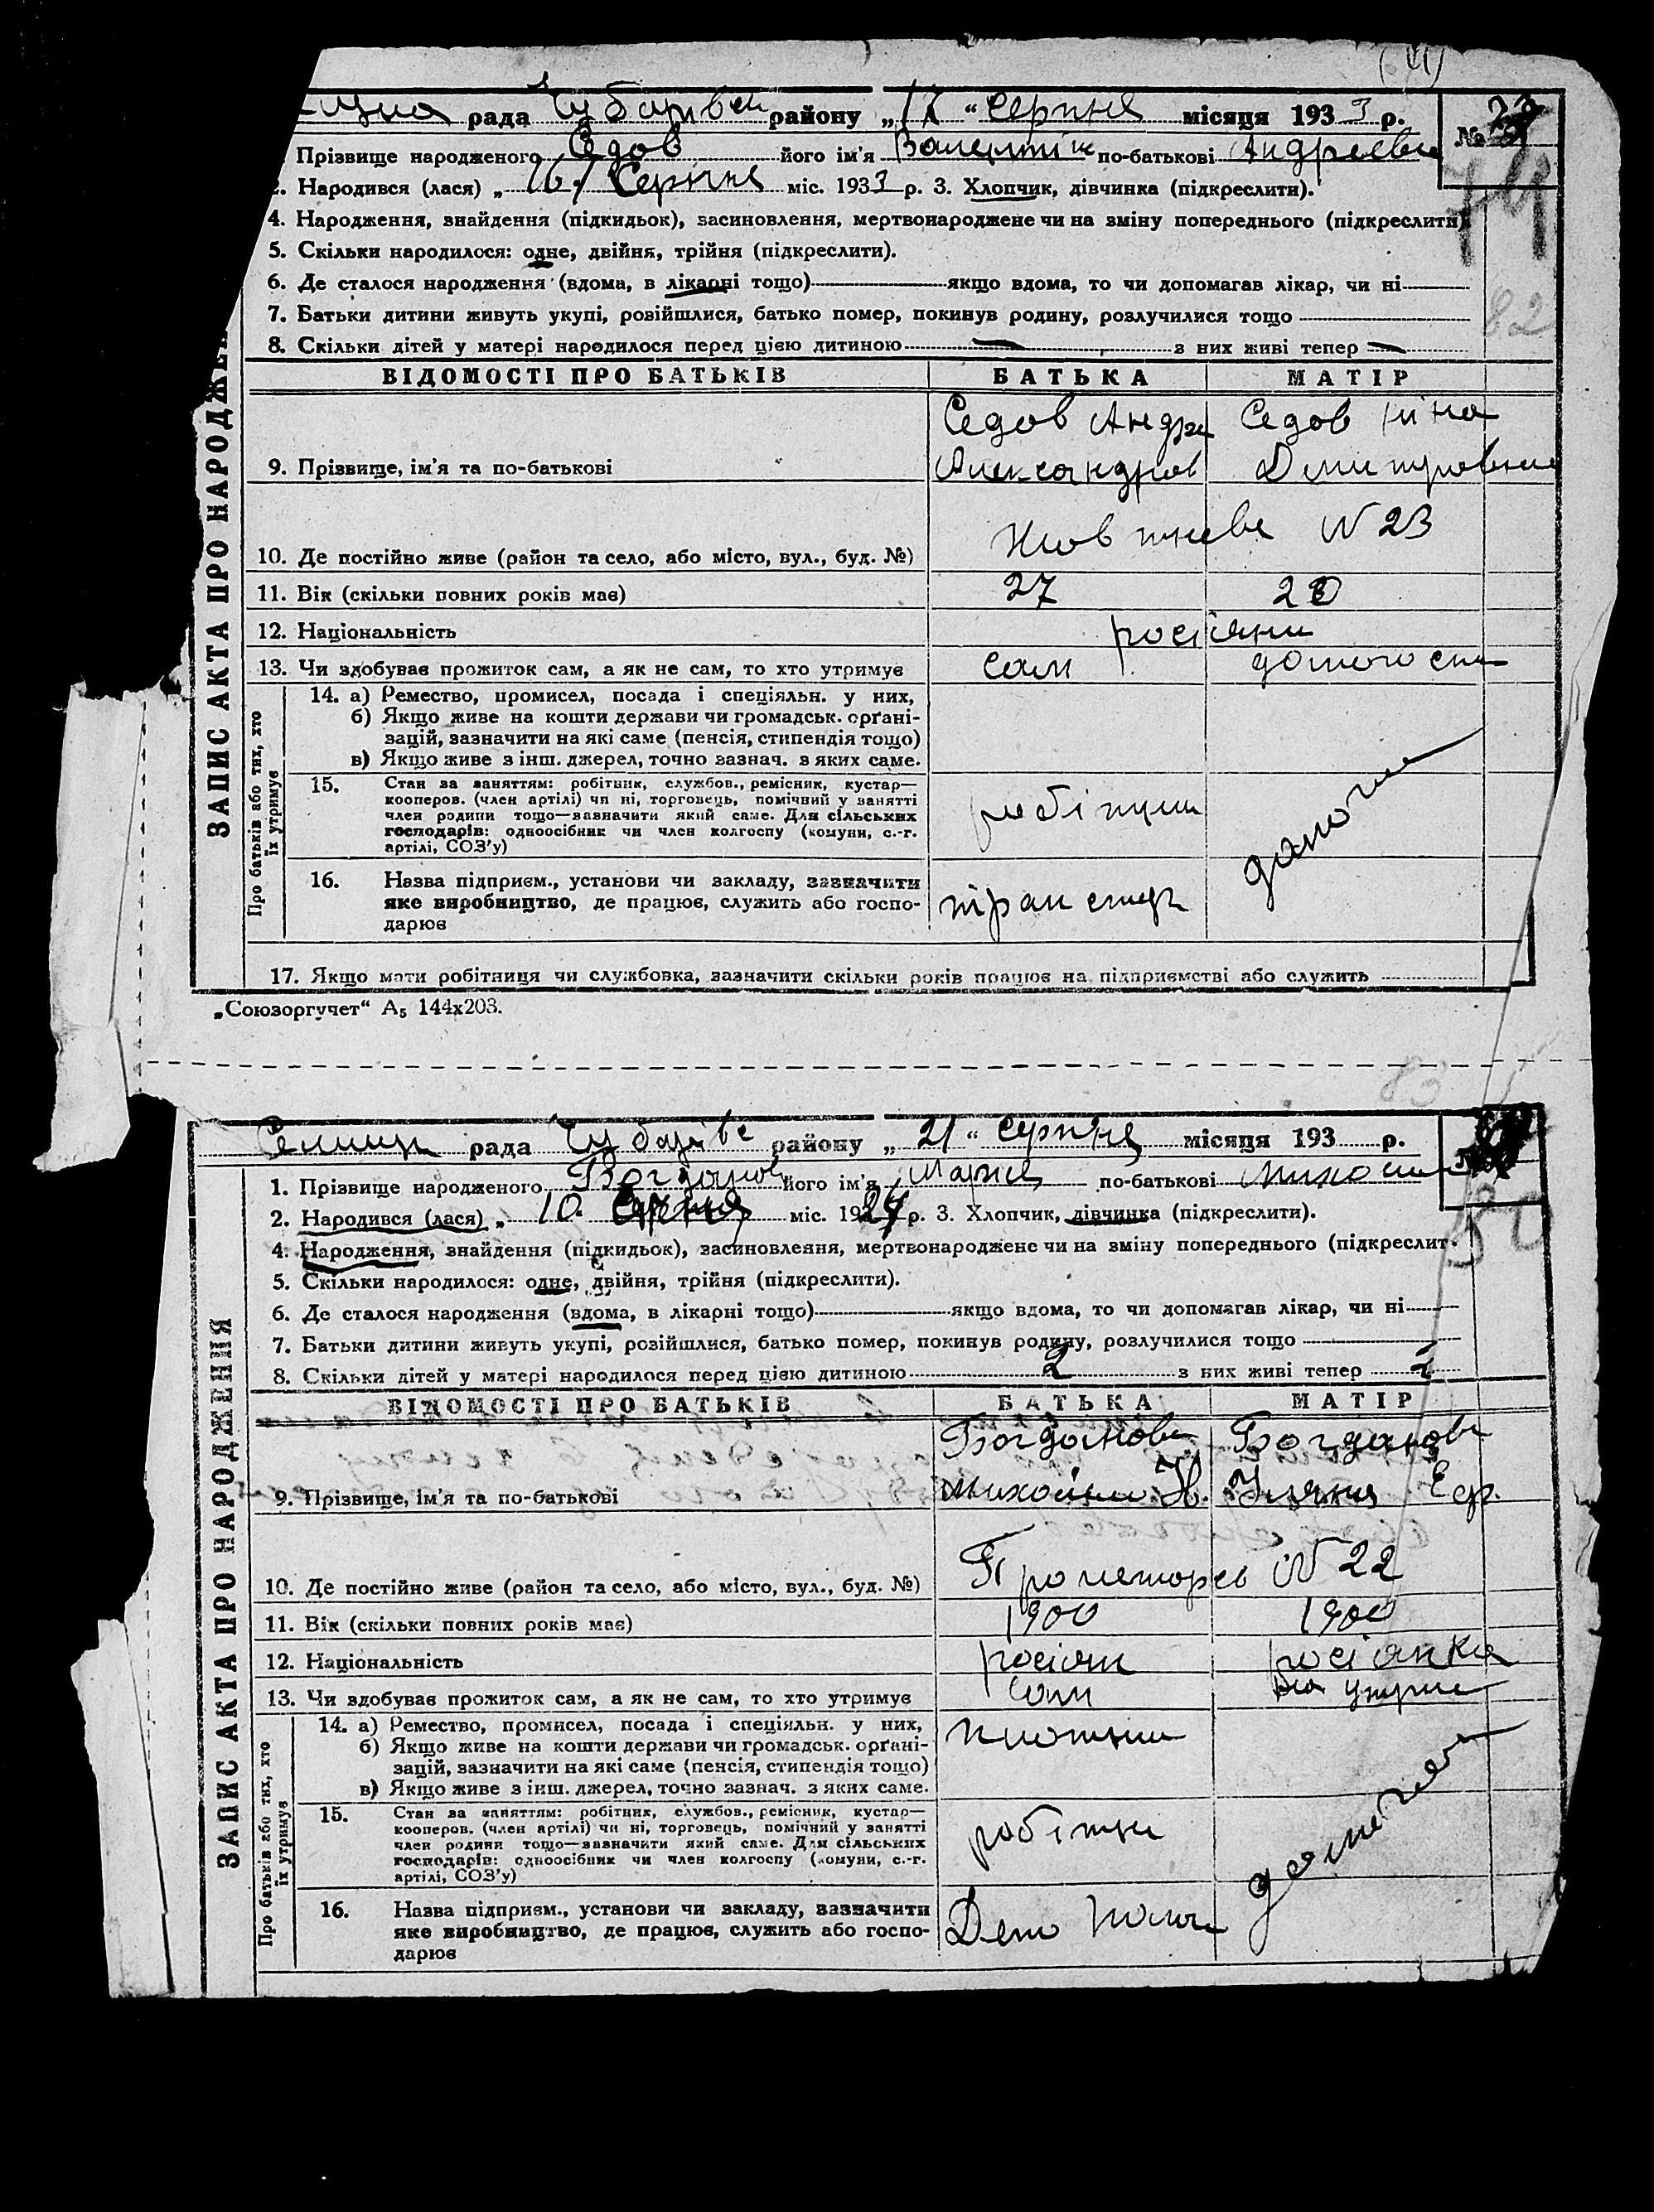 рада Чубарівськ району „17“ Серпня місяця 1933 р.
№
Прізвище народженого Седов його ім'я Валентін по-батькові Андреевич
2. Народився (лася) „16“ Серпня міс. 1933 р. 3. Хлопчик, дівчинка (підкреслити).
74
4. Народження, знайдення (підкидьок), засиновлення, мертвонароджене чи на зміну попереднього (підкреслити)
5. Скільки народилося: одне, двійня, трійня (підкреслити).
6. Де сталося народження (вдома, в лікарні тощо) якщо вдома, то чи допомагав лікар, чи ні
7. Батьки дитини живуть укупі, розійшлися, батько помер, покинув родину, розлучилися тощо
82
8. Скільки дітей у матері народилося перед цією дитиною — з них живі тепер —
ЗАПИС АКТА ПРО НАРОДЖЕН
ВІДОМОСТІ ПРО БАТЬКІВ БАТЬКА МАТІР
Седов Андре Седов Ніна
9. Прізвище, ім'я та по-батькові Александров Дмитровна
10. Де постійно живе (район та село, або місто, вул., буд. №) Жовтнева N 23
11. Вік (скільки повних років має) 27
12. Національність росіяни
13. Чи здобуває прожиток сам, а як не сам, то хто утримує сам
Про батьків або тих, хто їх утримує
14. а) Ремество, промисел, посада і спеціяльн. у них,
б) Якщо живе на кошти держави чи громадськ. орґані-
зацій, зазначити на які саме (пенсія, стипендія тощо)
в) Якщо живе з інш. джерел, точно зазнач. з яких саме.
15. Стан за заняттям: робітник, службов., ремісник, кустар—
кооперов. (член артілі) чи ні, торговець, помічний у занятті
член родини тощо—зазначити який саме. Для сільських
господарів: одноосібник чи член колгоспу (комуни, с.-г.
артілі, СОЗ'у)
робітник
16. Назва підприєм., установи чи закладу, зазначити
яке виробництво, де працює, служить або госпо-
дарює
17. Якщо мати робітниця чи службовка, зазначити скільки років працює на підприємстві або служить
„Союзоргучет“ А5 144х203.
83
Селищн рада Чубарівс району „21“ Серпня місяця 193 р.
1. Прізвище народженого Богданов його ім'я Мария по-батькові
2. Народився (лася) „10. Серпня міс. 1924 р. 3. Хлопчик, дівчинка (підкреслити).
4. Народження, знайдення (підкидьок), засиновлення, мертвонароджене чи на зміну попереднього (підкреслит
5. Скільки народилося: одне, двійня, трійня (підкреслити).
6. Де сталося народження (вдома, в лікарні тощо) якщо вдома, то чи допомагав лікар, чи ні
7. Батьки дитини живуть укупі, розійшлися, батько помер, покинув родину, розлучилися тощо
8. Скільки дітей у матері народилося перед цією дитиною 2 з них живі тепер 2
ЗАПИС АКТА ПРО НАРОДЖЕННЯ
ВІДОМОСТІ ПРО БАТЬКІВ БАТЬКА МАТІР
Богданов Богданова
9. Прізвище, ім'я та по-батькові Михайло Н. Уляна Еф.
10. Де постійно живе (район та село, або місто, вул., буд. №) N 22
11. Вік (скільки повних років має) 1900 1900
12. Національність росіян росіянка
13. Чи здобуває прожиток сам, а як не сам, то хто утримує сам
Про батьків або тих, хто їх утримує
14. а) Ремество, промисел, посада і спеціяльн. у них,
б) Якщо живе на кошти держави чи громадськ. орґані-
зацій, зазначити на які саме (пенсія, стипендія тощо)
в) Якщо живе з інш. джерел, точно зазнач. з яких саме.
плотник
15. Стан за заняттям: робітник, службов., ремісник, кустар—
кооперов. (член артілі) чи ні, торговець, помічний у занятті
член родини тощо—зазначити який саме. Для сільських
господарів: одноосібник чи член колгоспу (комуни, с.-г.
артілі, СОЗ'у)
робітник
16. Назва підприєм., установи чи закладу, зазначити
яке виробництво, де працює, служить або госпо-
дарює
Депо